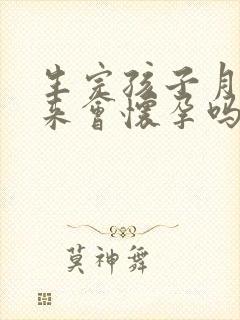 生完孩子月
来會懷孕吗
莫神舞